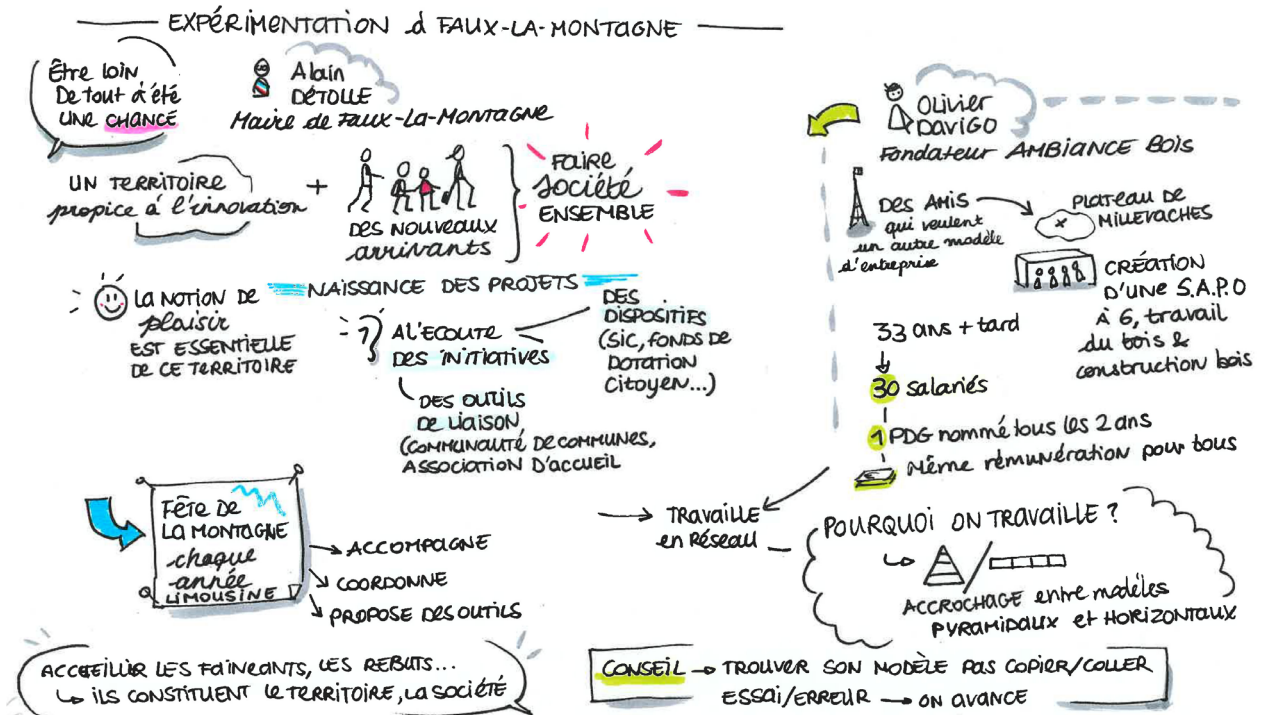 EXPÉRIMENTATION à FAUX-LA-MONTAGNE
Être loin
De tout a été
UNE CHANCE
Alain
DÉTOLLE
Maire de FAUX-LA-MONTAGNE
UN TERRITOIRE
propice à l'innovation
+
DES NOUVEAUX
arrivants
FAIRE
société
ENSEMBLE
LA NOTION DE
plaisir
EST ESSENTIELLE
DE CE TERRITOIRE
NAISSANCE DES PROJETS
A L'ECOUTE
DES INITIATIVES
DES
DISPOSITIFS
(SIC, FONDS DE
DOTATION
Citoyen...)
DES OUTILS
DE LIAISON
(COMMUNAUTÉ DE COMMUNES,
ASSOCIATION D'ACCUEIL
FÊTE DE
LA MONTAGNE
chaque
année
LIMOUSINE
ACCOMPAGNE
COORDONNE
PROPOSE DES OUTILS
ACCUEILLIR LES FAINEANTS, LES REBUTS...
ILS CONSTITUENT LE TERRITOIRE, LA SOCIÉTÉ
OLIVIER
DAVIGO
Fondateur AMBIANCE BOIS
DES AMIS
qui veulent
un autre modèle
d'entreprise
PLATEAU DE
MILLEVACHES
CRÉATION
D'UNE S.A.P.O
À 6, travail
du bois &
construction bois
33 ans + tard
30 salariés
1 PDG nommé tous les 2 ans
Même rémunération pour tous
TRAVAILLE
en Réseau
POURQUOI ON TRAVAILLE ?
ACCROCHAGE entre modèles
PYRAMIDAUX et HORIZONTAUX
CONSEIL → TROUVER SON MODÈLE PAS COPIER/COLLER
ESSAI/ERREUR → ON AVANCE